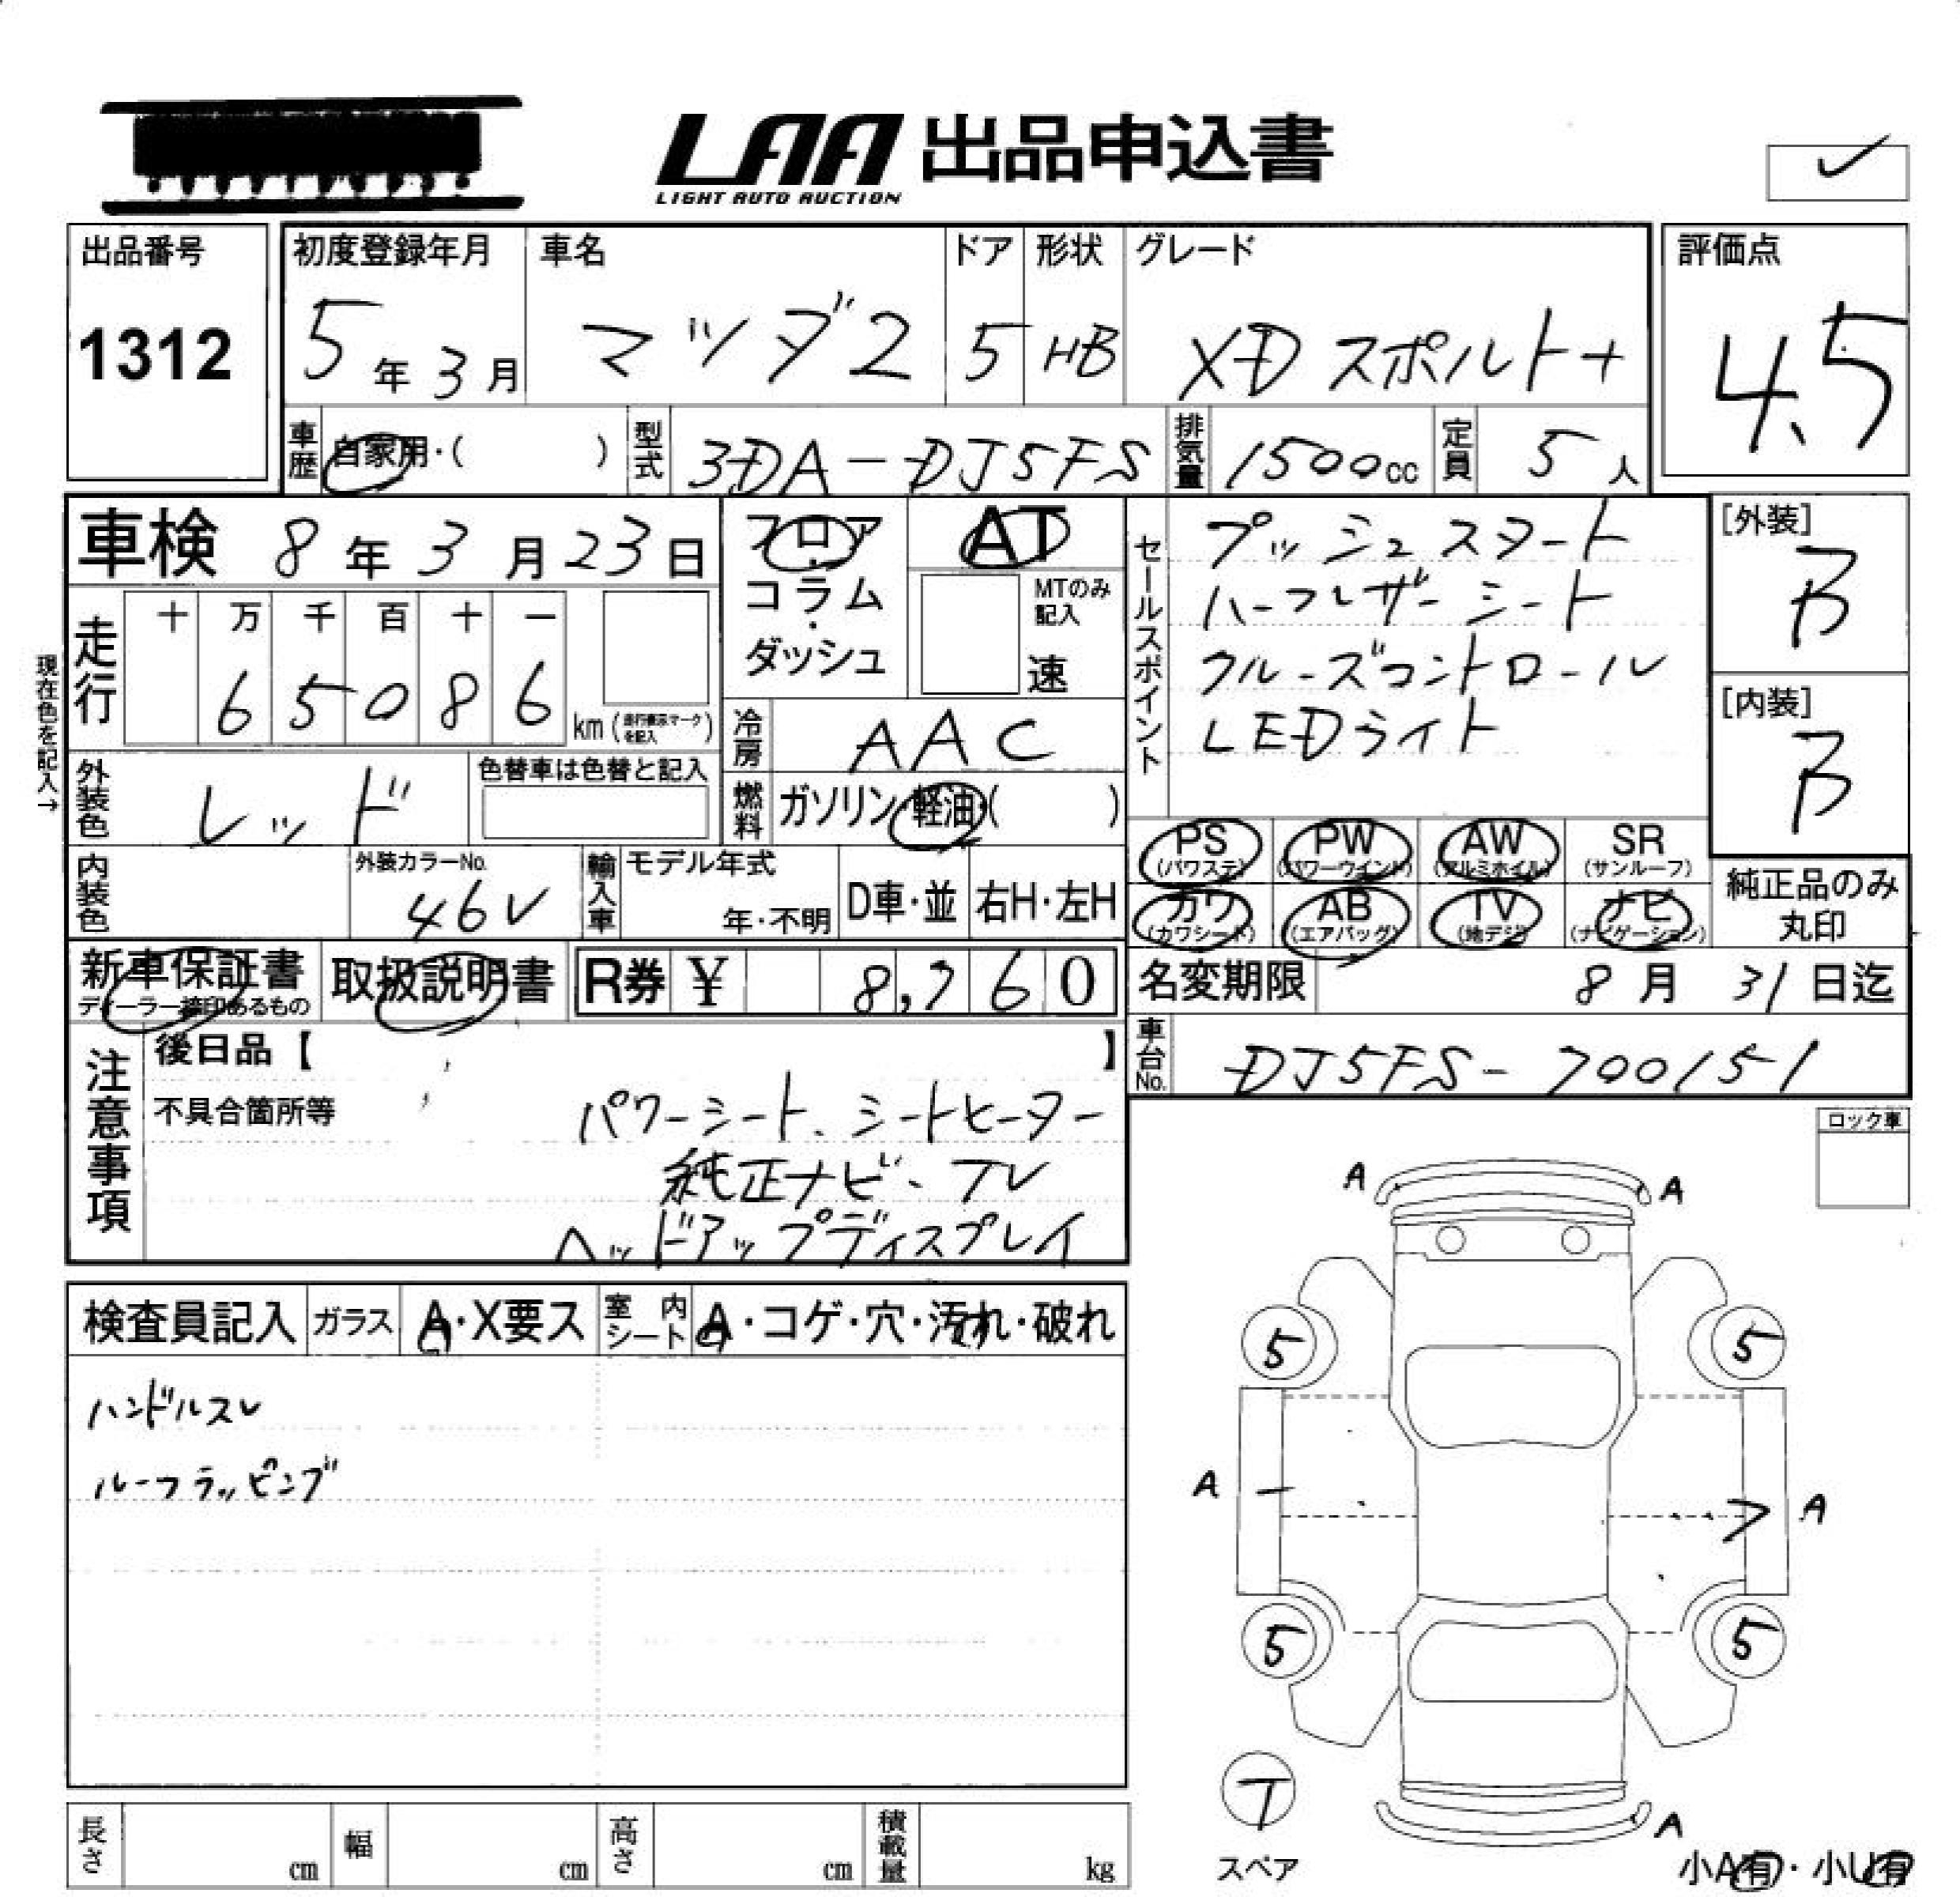 LAA 出品申込書
LIGHT AUTO AUCTION
出品番号
1312
初度登録年月
5年3月
車名
マツダ2
ドア
5
形状
HB
グレード
XD スポルト+
評価点
4.5
車歴
自家用・( )
型式
3DA-DJ5FS
排気量
1500cc
定員
5人
車検 8年3月23日
走行
十 万 千 百 十 一
6 5 0 8 6 km (走行表示マークを記入)
現在色を記入→
外装色
レッド
色替車は色替と記入
内装色
外装カラーNo.
46V
輸入車
モデル年式
年・不明
D車・並
右H・左H
フロア・コラム・ダッシュ
AT
MTのみ記入
速
冷房
AAC
燃料
ガソリン・軽油・( )
セールスポイント
プッシュスタート
ハーフレザーシート
クルーズコントロール
LEDライト
[外装]
B
[内装]
B
PS (パワステ)
PW (パワーウインド)
AW (アルミホイル)
SR (サンルーフ)
カワ (カワシート)
AB (エアバッグ)
TV (地デジ)
ナビ (ナビゲーション)
純正品のみ丸印
新車保証書
ディーラー捺印あるもの
取扱説明書
R券 ¥ 8,760
名変期限 8月31日迄
車台No.
DJ5FS-700151
注意事項
後日品【 】
不具合箇所等
パワーシート、シートヒーター
純正ナビ、TV
ヘッドアップディスプレイ
ロック車
検査員記入
ガラス A・X要ス
室内シート A・コゲ・穴・汚れ・破れ
ハンドルスレ
ルーフラッピング
A A
5 5
A A
5 5
T
スペア
A
小A有・小U有
長さ cm
幅 cm
高さ cm
積載量 kg